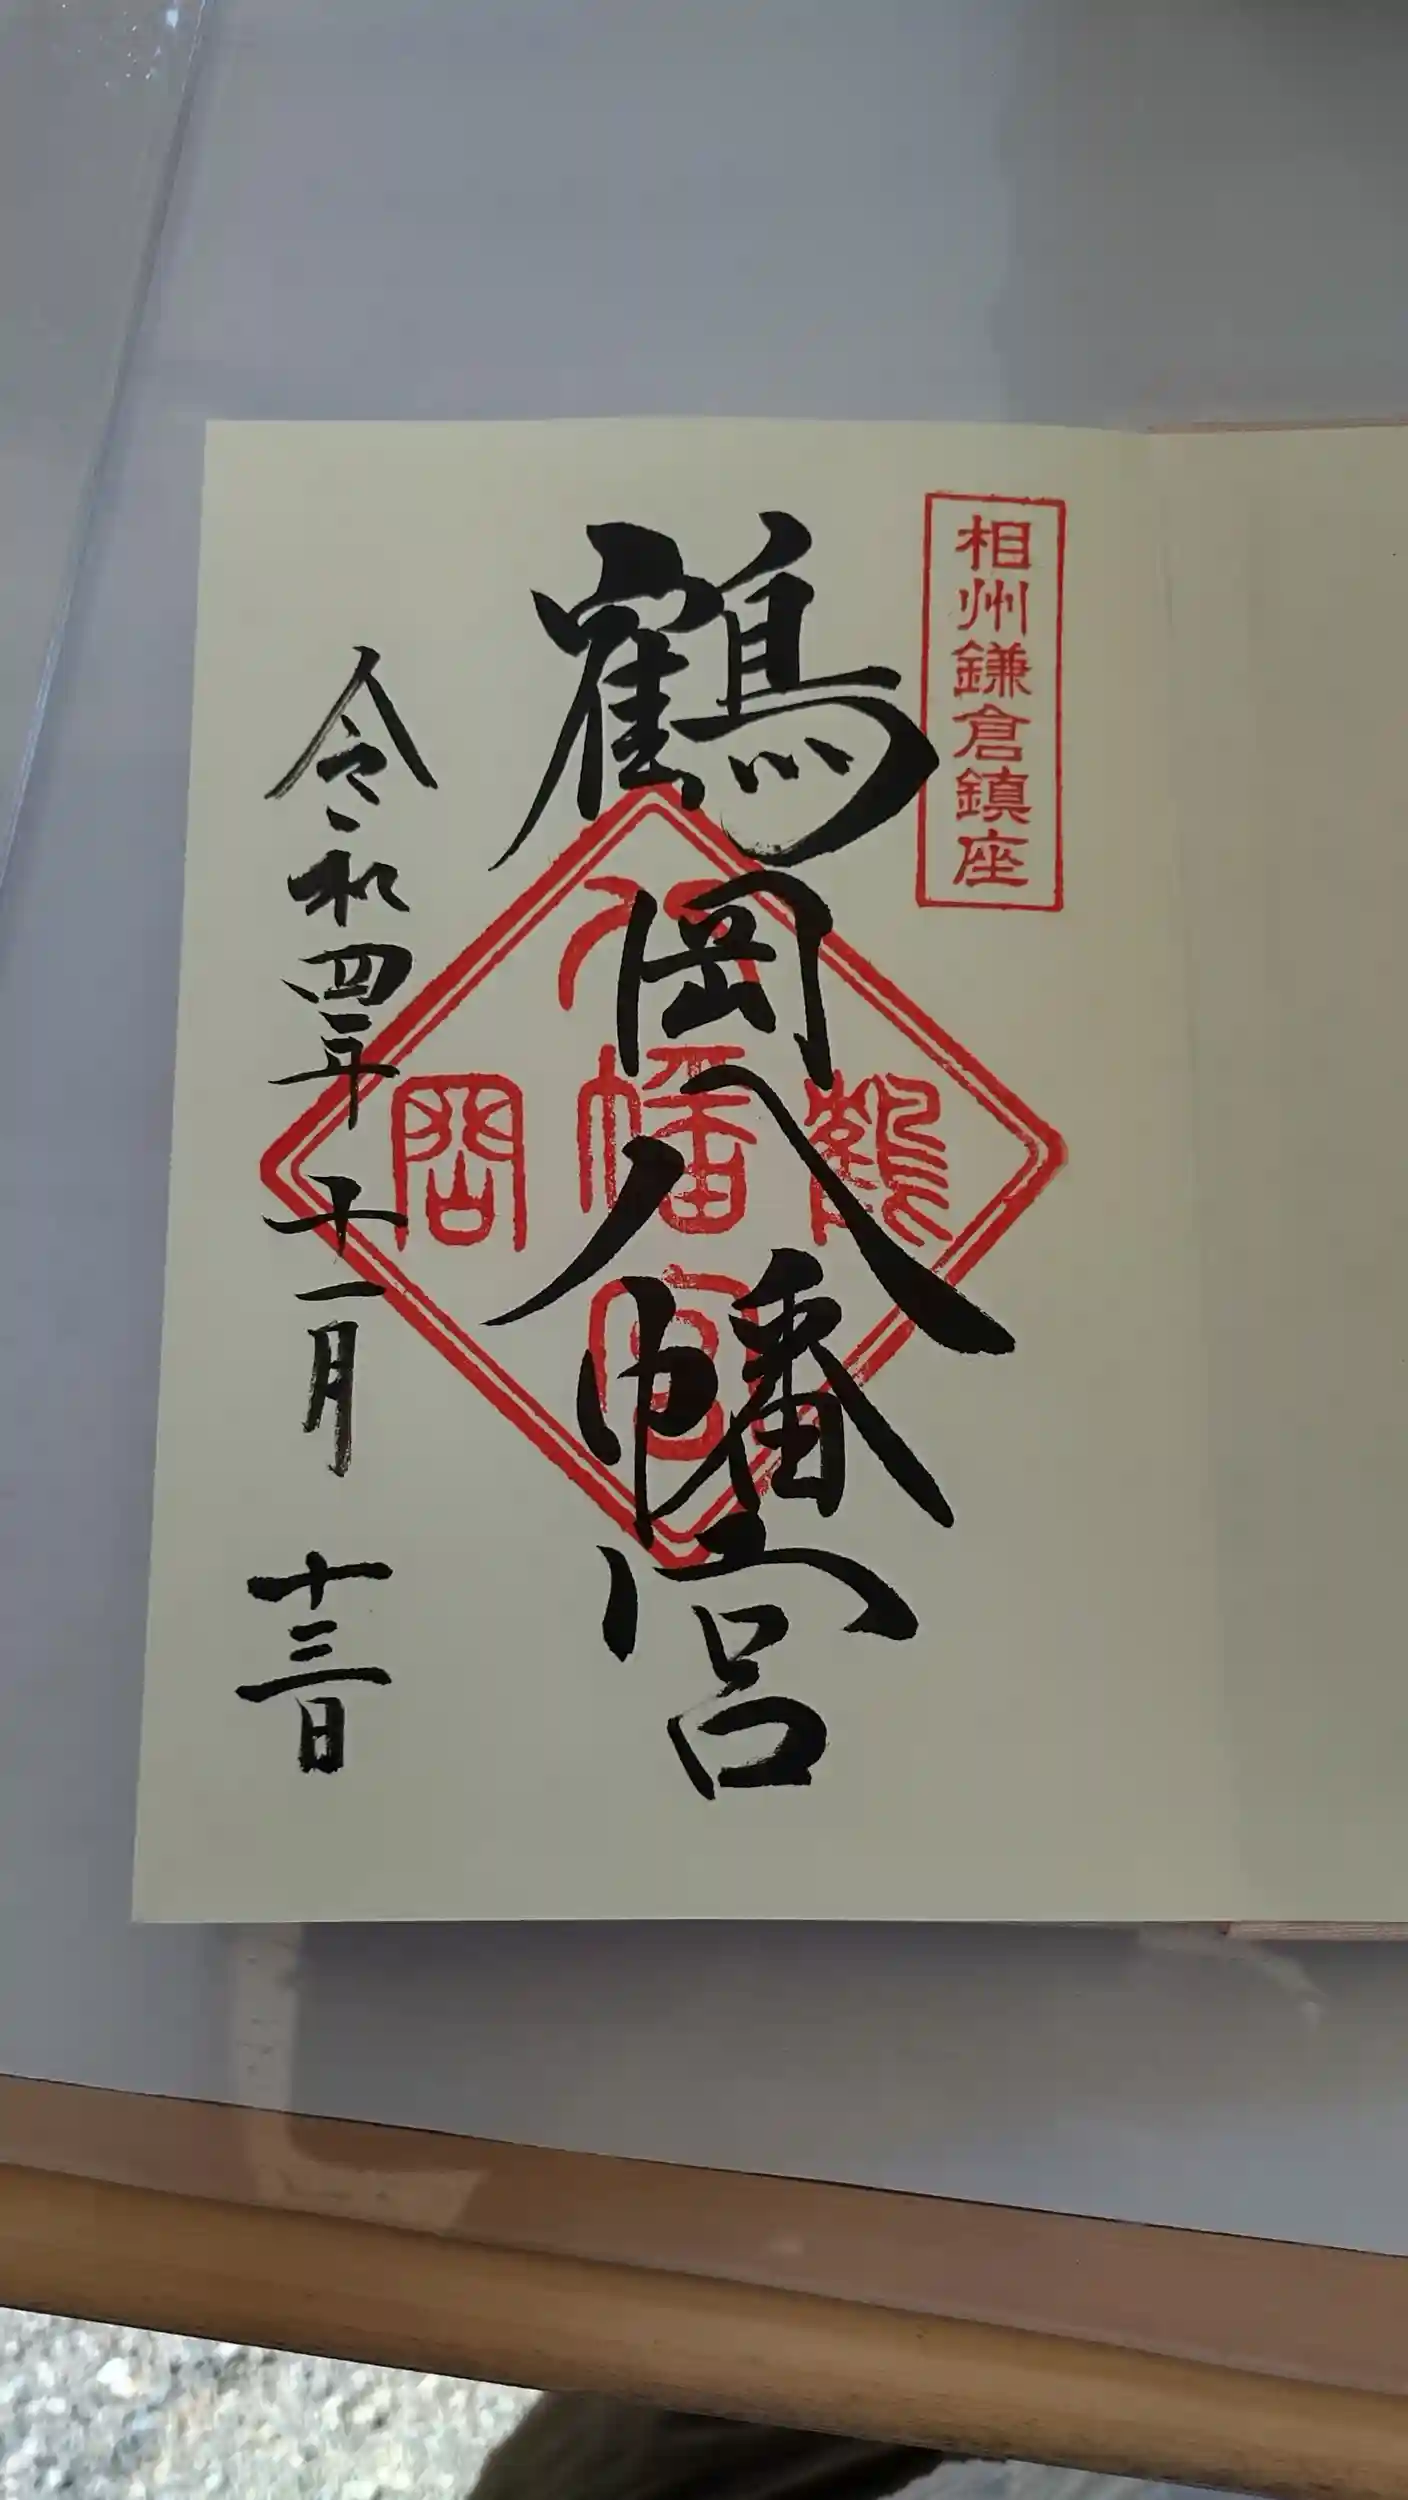 相州鎌倉鎮座
鶴岡八幡宮
八
鶴幡岡
宮
令和四年十一月十三日